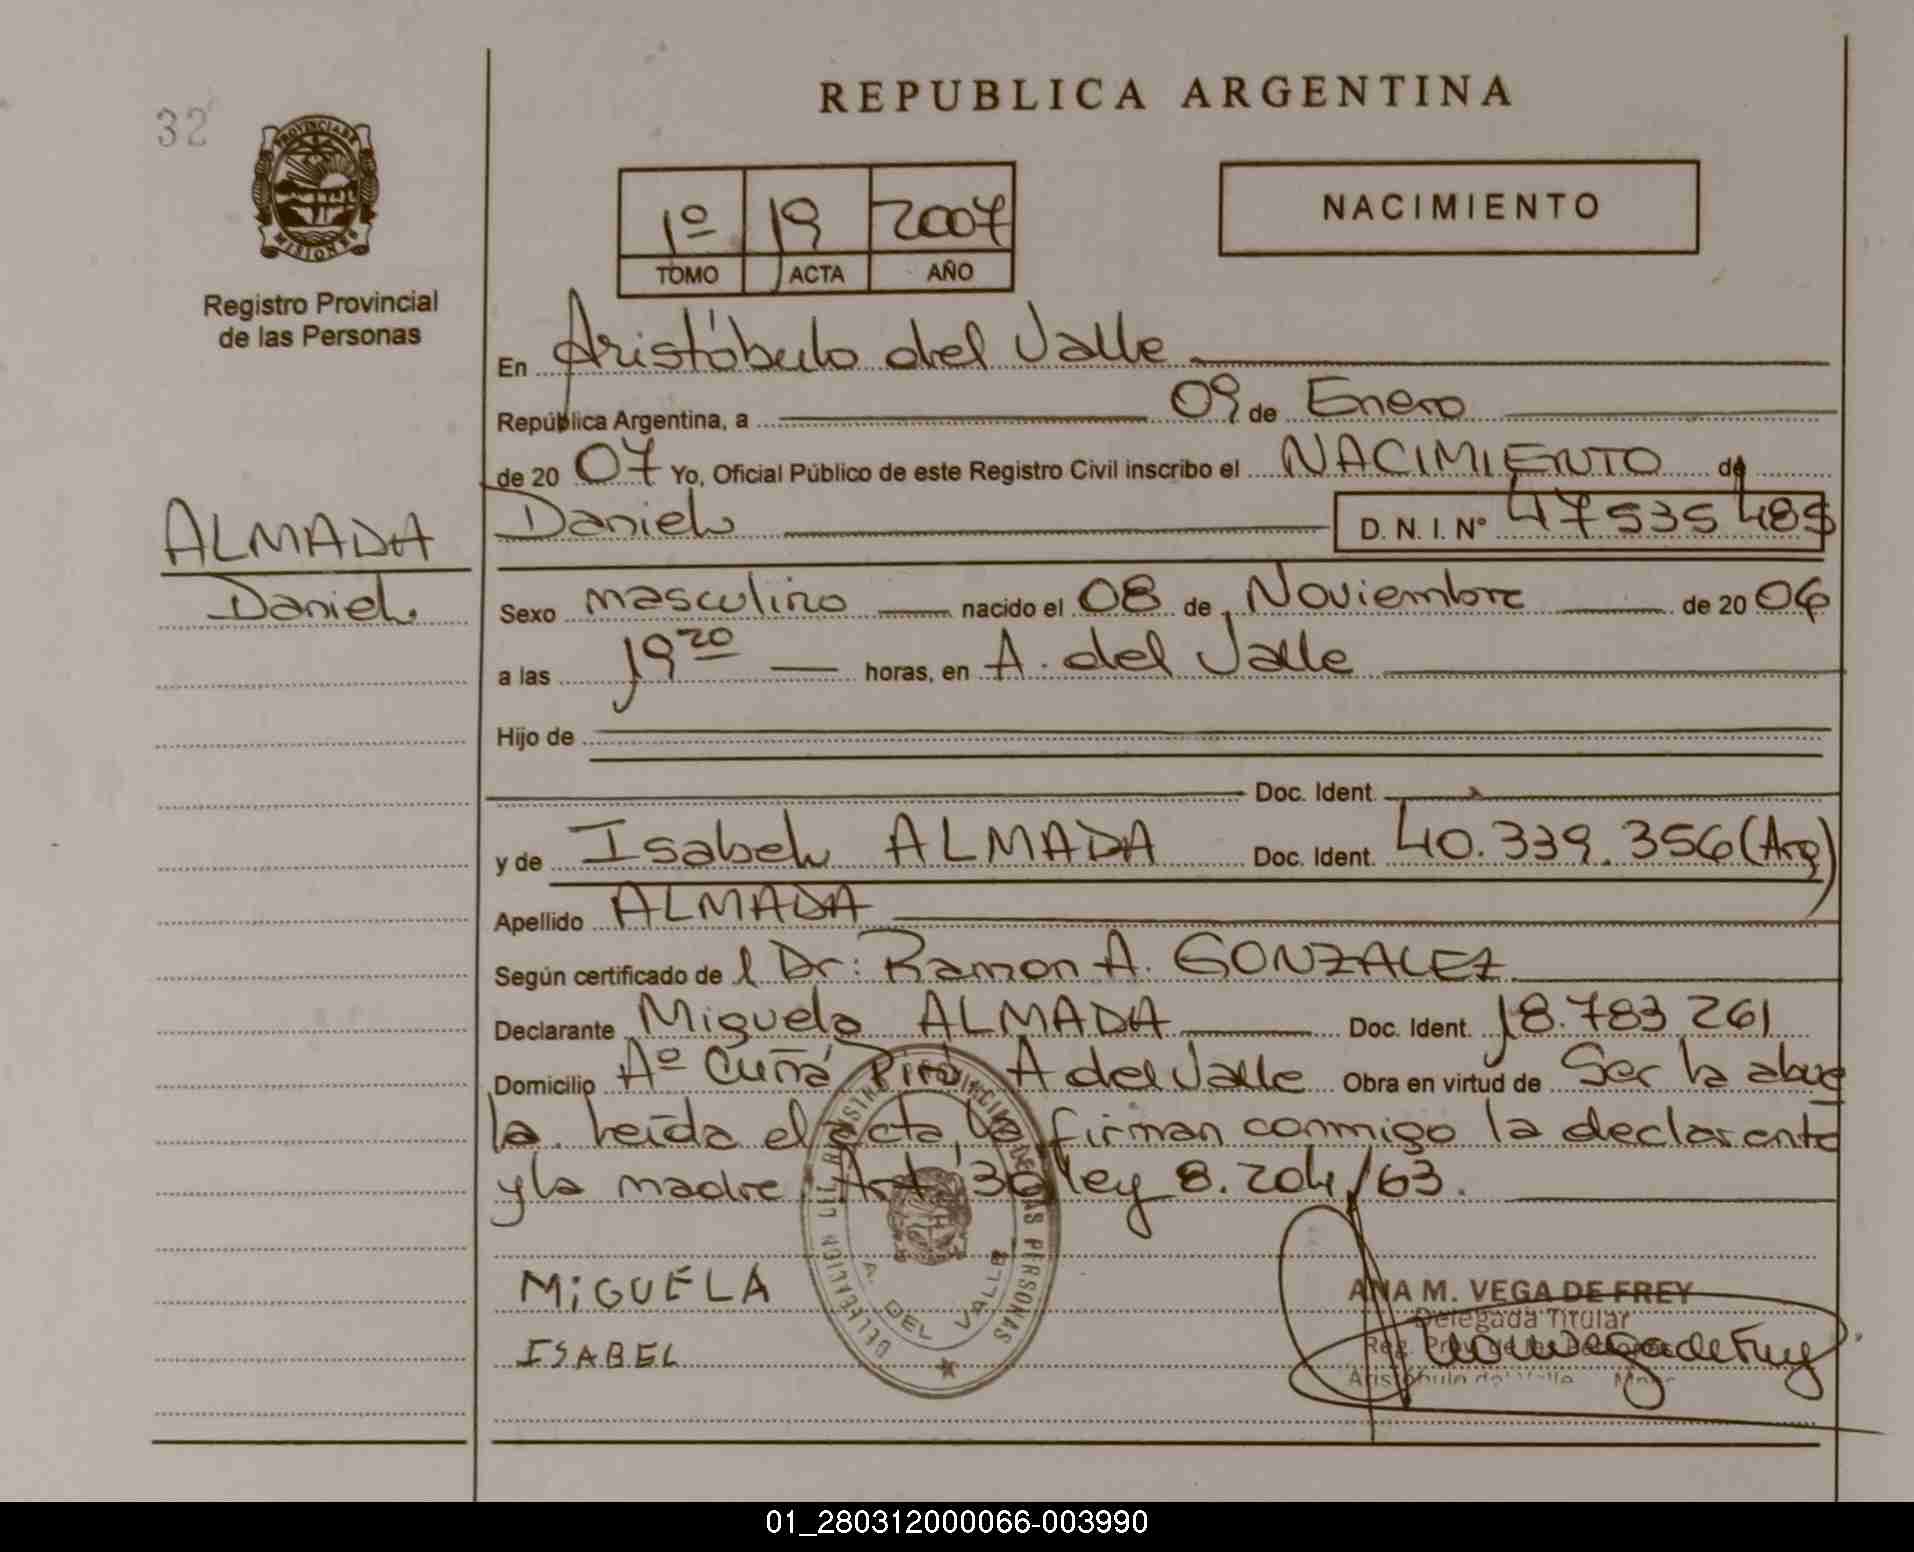 REPUBLICA ARGENTINA
32
PROVINCIA DE
MISIONES
Registro Provincial
de las Personas
1º 19 2007
TOMO ACTA AÑO
NACIMIENTO
En Aristóbulo del Valle
República Argentina, a 09 de Enero
de 20 07 Yo, Oficial Público de este Registro Civil inscribo el NACIMIENTO de
Daniel D. N. I. Nº 47535485
ALMADA
Daniel.
Sexo masculino nacido el 08 de Noviembre de 20 06
a las 19 20 horas, en A. del Valle
Hijo de
Doc. Ident.
y de Isabel ALMADA Doc. Ident. 40.339.356 (Arg)
Apellido ALMADA
Según certificado de l Dr: Ramon A. GONZALEZ
Declarante Miguela ALMADA Doc. Ident. 18.783 261
Domicilio Aº Cuñá Pirú A del Valle Obra en virtud de Ser la abue
la. Leída el acta, la firman conmigo la declarante
y la madre Art 36 ley 8.204/63.
DELEGACION DEL REGISTRO PROVINCIAL DE LAS PERSONAS
A. DEL VALLE
MiGUELA
ISABEL
ANA M. VEGA DE FREY
Delegada Titular
Reg. Prov. de las Personas
Aristóbulo del Valle
01_280312000066-003990